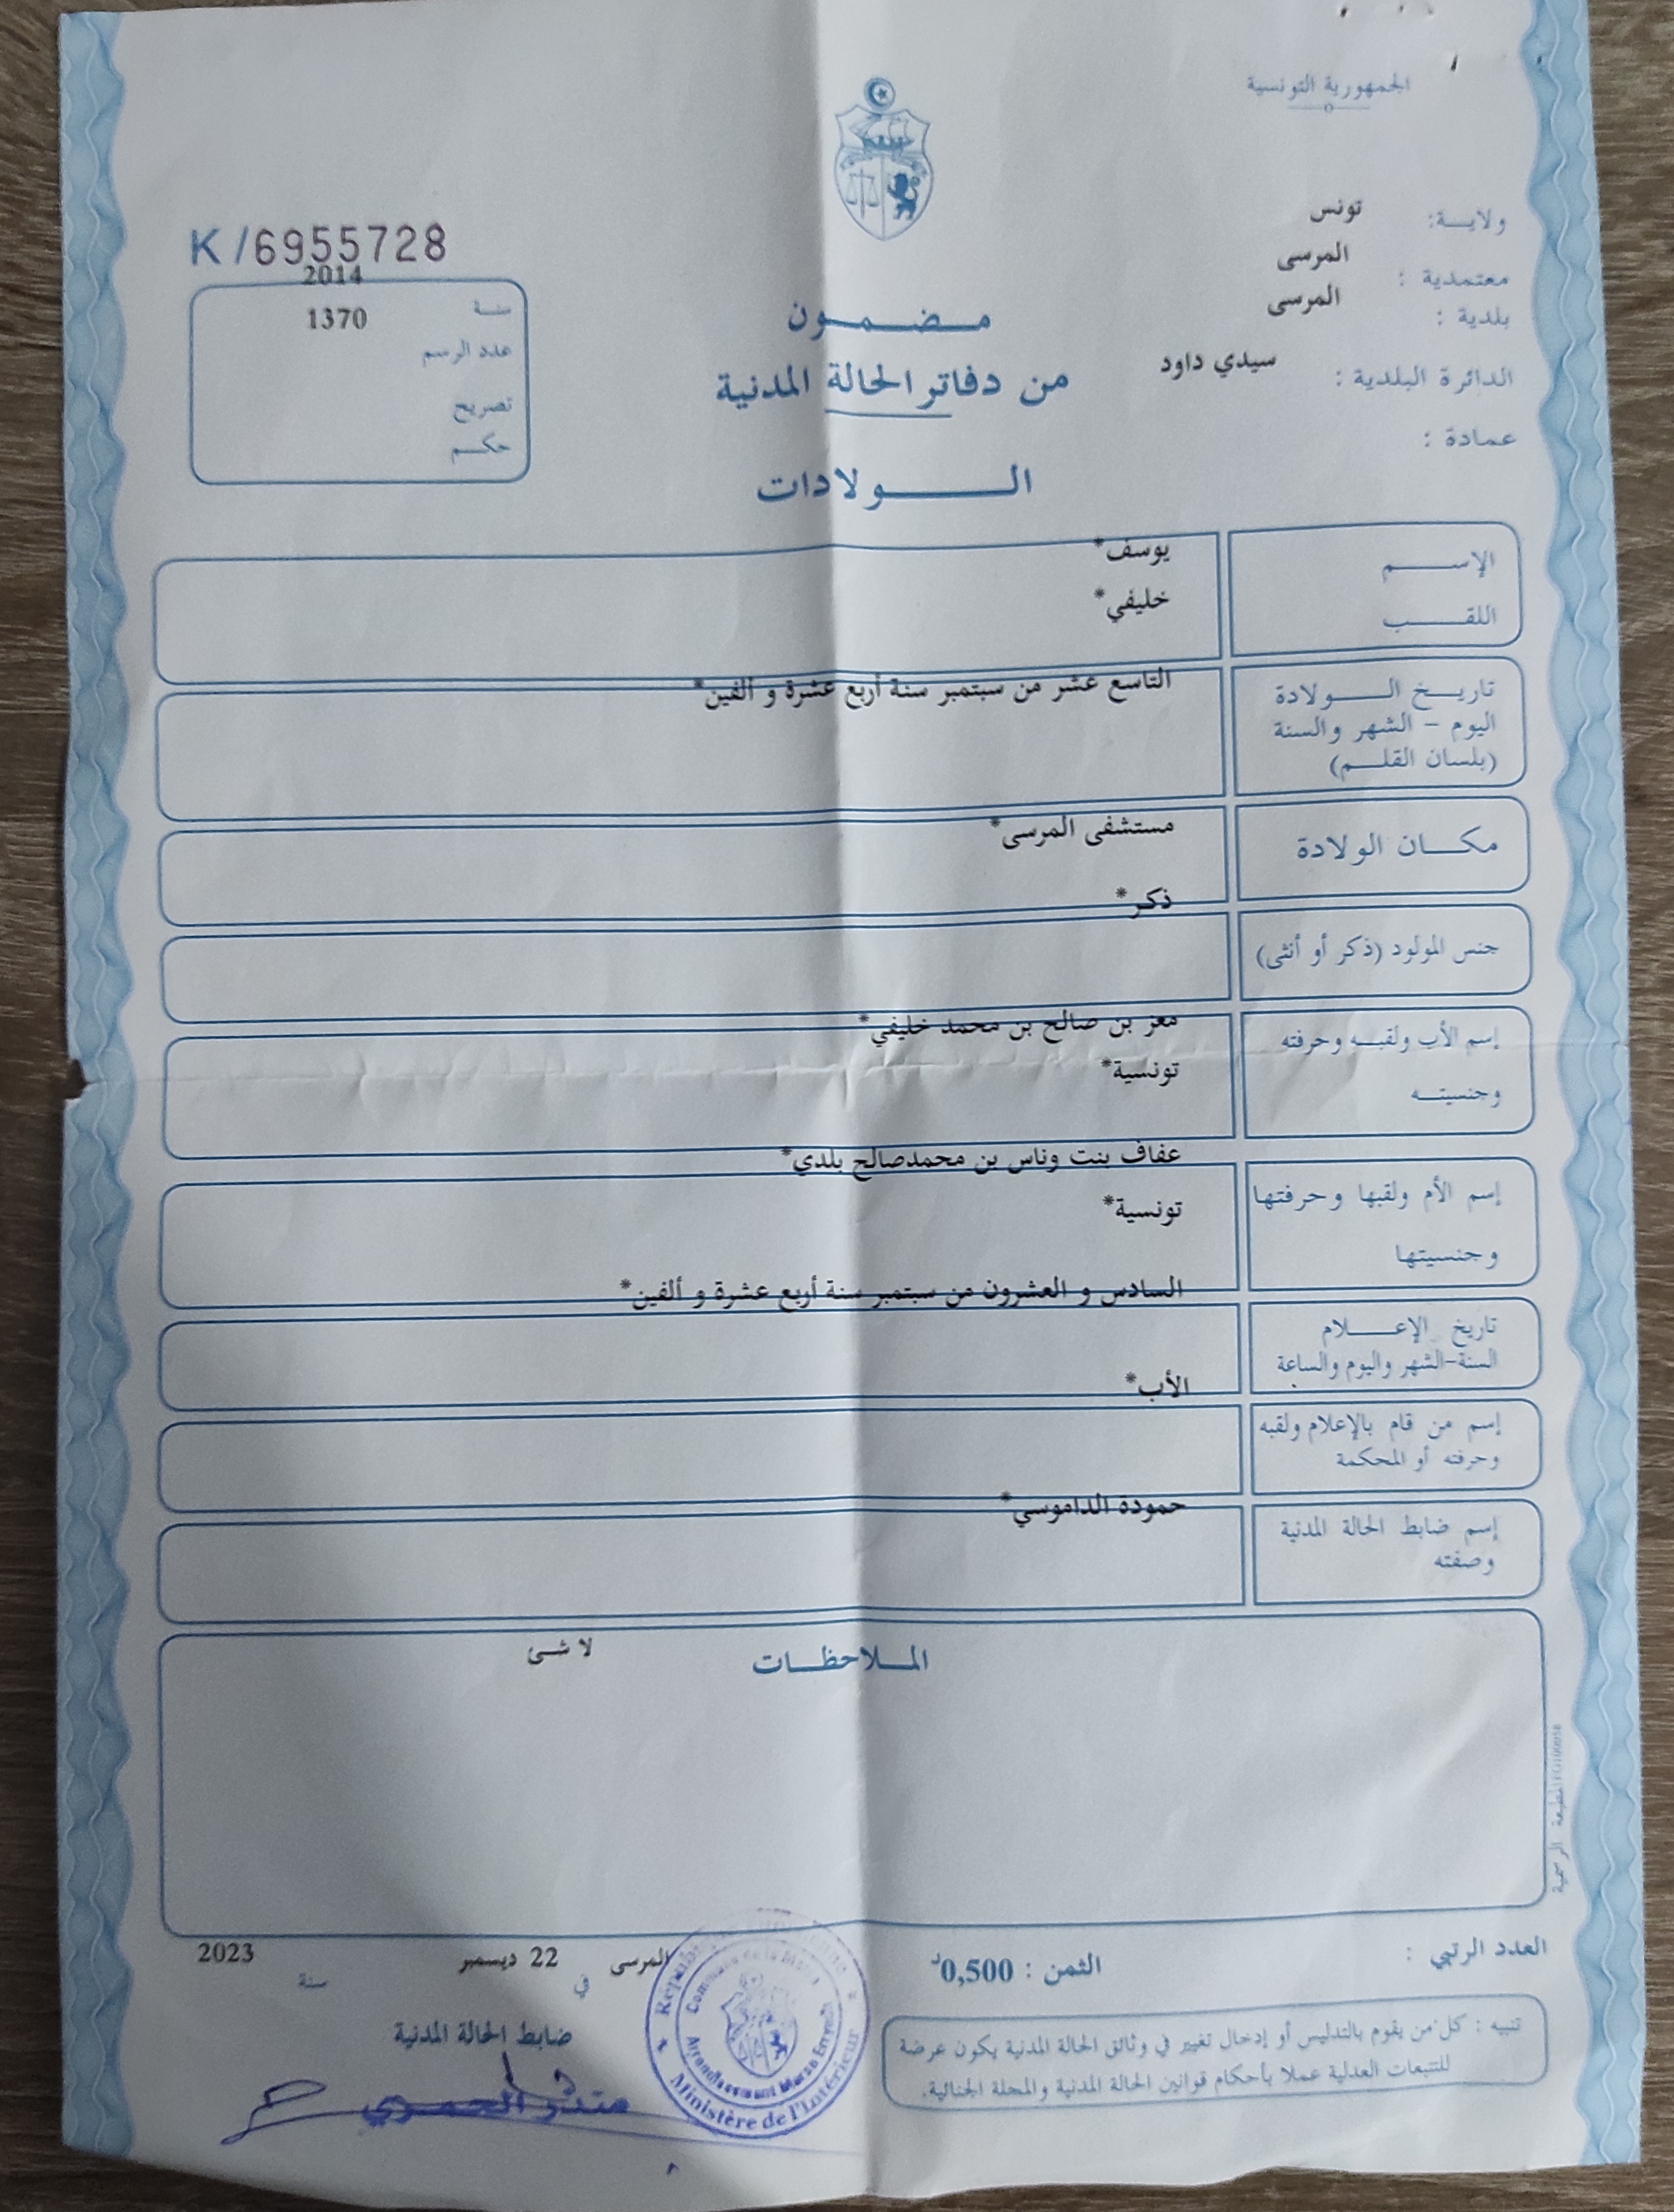 الجمهورية التونسية
ولايـة: تونس
معتمدية : المرسى
بلدية : المرسى
الدائرة البلدية : سيدي داود
عمادة :
K/6955728
سنـة 2014
عدد الرسم 1370
تصريح
حكـم
مـضـمـون
من دفاتر الحالة المدنية
الـولادات
الإسـم يوسف*
اللقـب خليفي*
تاريـخ الـولادة التاسع عشر من سبتمبر سنة أربع عشرة و ألفين*
اليوم - الشهر والسنة
(بلسان القلـم)
مكـان الولادة مستشفى المرسى*
جنس المولود (ذكر أو أنثى) ذكر*
إسم الأب ولقبـه وحرفته معز بن صالح بن محمد خليفي*
وجنسيتـه تونسية*
إسم الأم ولقبها وحرفتها عفاف بنت وناس بن محمدصالح بلدي*
وجنسيتها تونسية*
تاريخ الإعـلام السادس و العشرون من سبتمبر سنة أربع عشرة و ألفين*
السنة-الشهر واليوم والساعة
إسم من قام بالإعلام ولقبه الأب*
وحرفته أو المحكمة
إسم ضابط الحالة المدنية حمودة الداموسي*
وصفته
المـلاحظـات لا شئ
المطبعة الرسمية
العدد الرتبي :
الثمن : 0,500د
المرسى في 22 ديسمبر سنة 2023
ضابط الحالة المدنية
Commune de la Marsa
Ministère de l'Intérieur
تنبيه : كل من يقوم بالتدليس أو إدخال تغيير في وثائق الحالة المدنية يكون عرضة
للتتبعات العدلية عملا بأحكام قوانين الحالة المدنية والمجلة الجنائية.